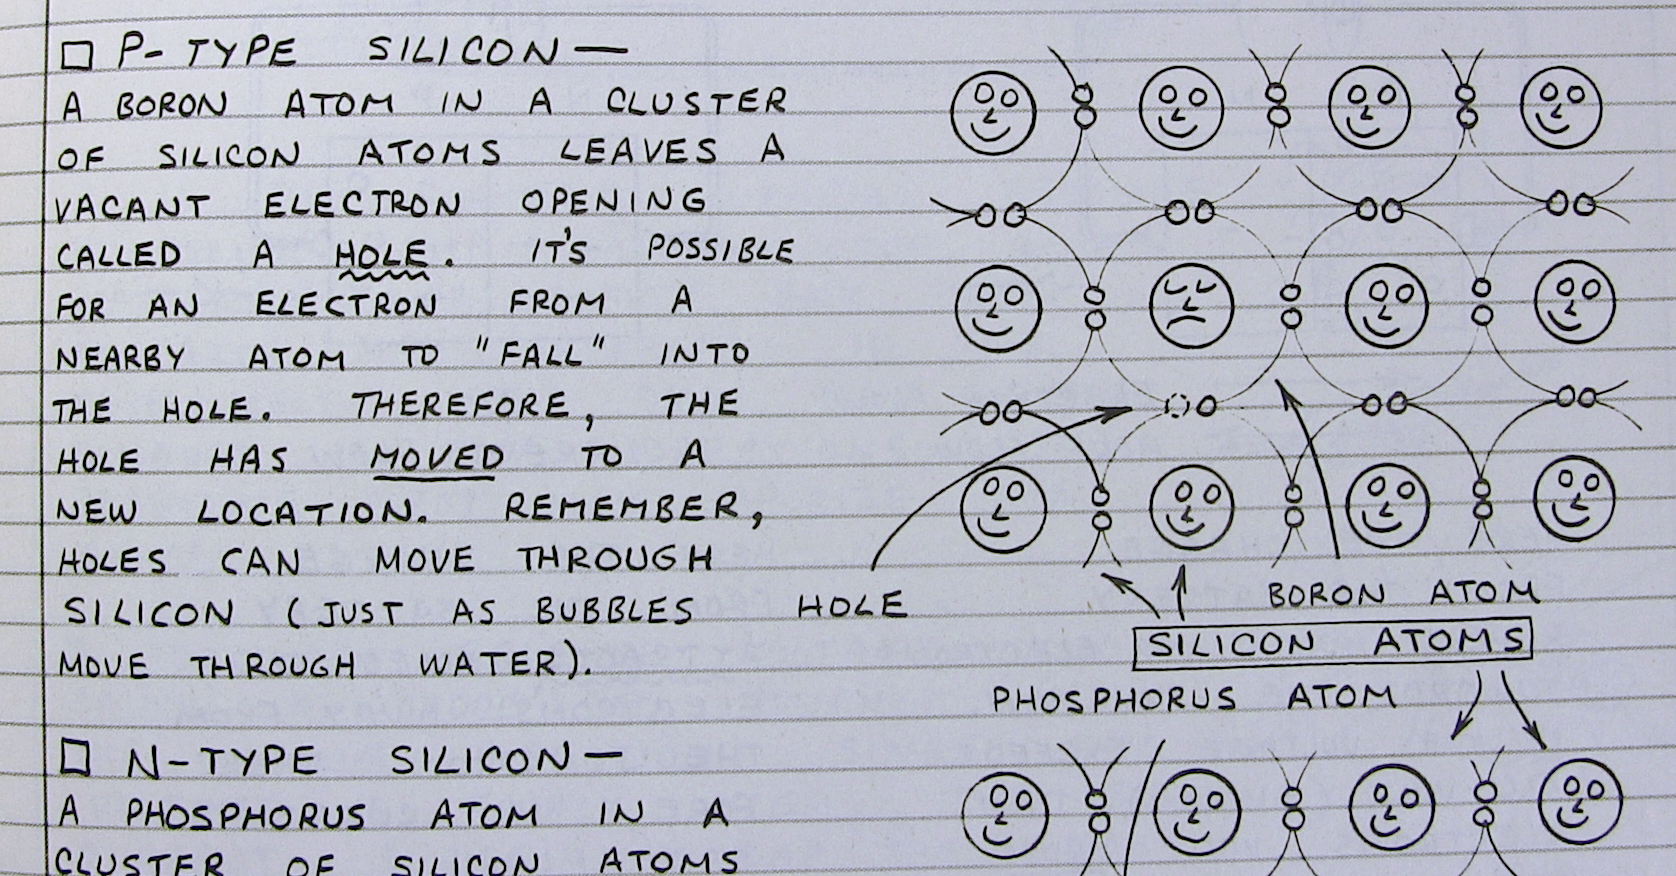 □ P-TYPE SILICON—
A BORON ATOM IN A CLUSTER
OF SILICON ATOMS LEAVES A
VACANT ELECTRON OPENING
CALLED A HOLE. IT'S POSSIBLE
FOR AN ELECTRON FROM A
NEARBY ATOM TO "FALL" INTO
THE HOLE. THEREFORE, THE
HOLE HAS MOVED TO A
NEW LOCATION. REMEMBER,
HOLES CAN MOVE THROUGH
SILICON (JUST AS BUBBLES
MOVE THROUGH WATER).
HOLE
BORON ATOM
SILICON ATOMS
PHOSPHORUS ATOM
□ N-TYPE SILICON—
A PHOSPHORUS ATOM IN A
CLUSTER OF SILICON ATOMS